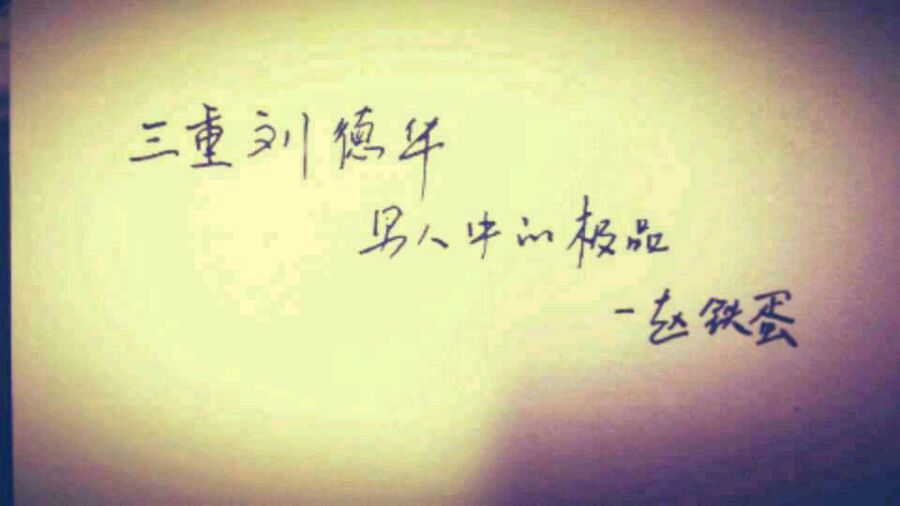 三重刘德华
男人中的极品
-赵铁蛋